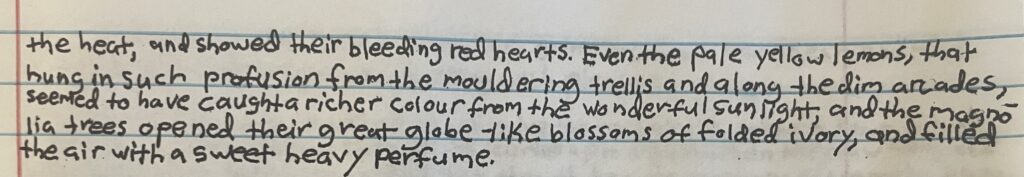 the heat, and showed their bleeding red hearts. Even the pale yellow lemons, that
hung in such profusion from the mouldering trellis and along the dim arcades,
seemed to have caught a richer colour from the wonderful sunlight, and the magno-
lia trees opened their great globe-like blossoms of folded ivory, and filled
the air with a sweet heavy perfume.